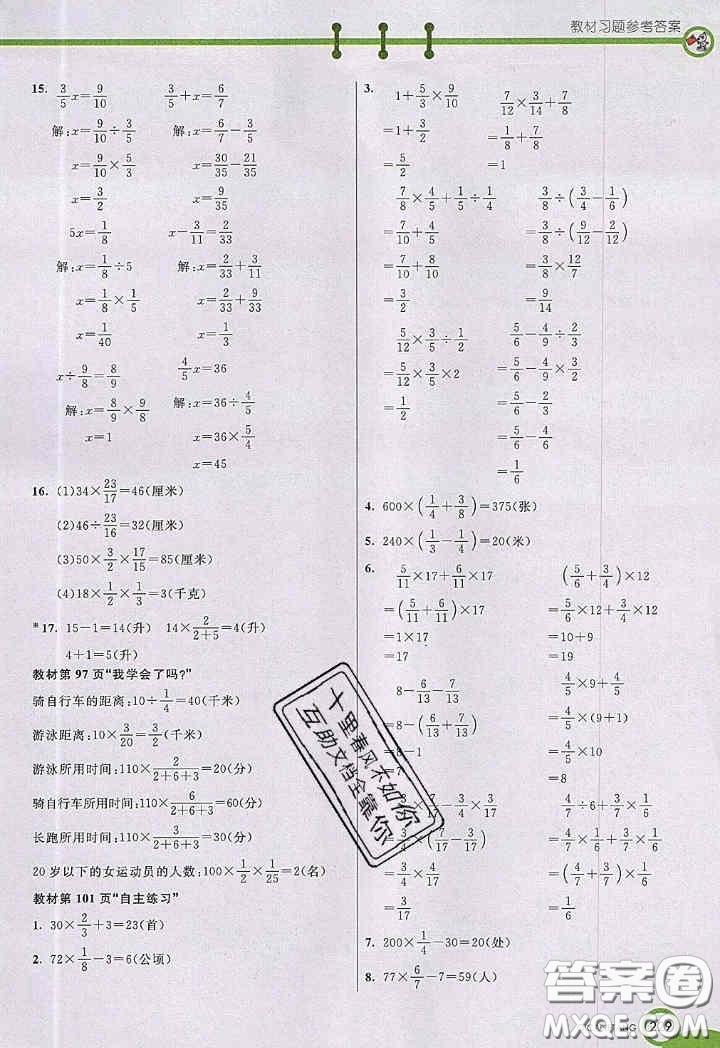 教材习题参考答案
15. 3/5 x=9/10    3/5+x=6/7
解:x=9/10÷3/5    解:x=6/7-3/5
x=9/10×5/3    x=30/35-21/35
x=3/2    x=9/35
5x=1/8    x-3/11=2/33
解:x=1/8÷5    解:x=2/33+3/11
x=1/8×1/5    x=2/33+9/33
x=1/40    x=1/3
x÷9/8=8/9    4/5 x=36
解:x=8/9×9/8    解:x=36÷4/5
x=1    x=36×5/4
x=45
16. (1)34×23/17=46(厘米)
(2)46÷23/16=32(厘米)
(3)50×3/2×17/15=85(厘米)
(4)18×1/2×1/3=3(千克)
*17. 15-1=14(升)  14×2/(2+5)=4(升)
4+1=5(升)
教材第 97 页“我学会了吗?”
骑自行车的距离:10÷1/4=40(千米)
游泳距离:10×3/20=3/2(千米)
游泳所用时间:110×2/(2+6+3)=20(分)
骑自行车所用时间:110×6/(2+6+3)=60(分)
长跑所用时间:110×3/(2+6+3)=30(分)
20 岁以下的女运动员的人数:100×1/2×1/25=2(名)
教材第 101 页“自主练习”
1. 30×2/3+3=23(首)
2. 72×1/8-3=6(公顷)
3. 1+5/3×9/10    7/12×3/14+7/8
=1+3/2    =1/8+7/8
=5/2    =1
7/8×4/5+1/5÷1/4    3/8÷(3/4-1/6)
=7/10+4/5    =3/8÷(9/12-2/12)
=3/2    =3/8×12/7
=9/14
5/12×3/5÷1/2    5/6-4/9÷2/3
=5/12×3/5×2    =5/6-4/9×3/2
=1/2    =5/6-2/3
=1/6
4. 600×(1/4+3/8)=375(张)
5. 240×(1/3-1/4)=20(米)
6. 5/11×17+6/11×17    (5/6+3/4)×12
=(5/11+6/11)×17    =5/6×12+3/4×12
=1×17    =10+9
=17    =19
8-6/13-7/13    4/5×9+4/5
=8-(6/13+7/13)    =4/5×(9+1)
=8-1    =4/5×10
=8
4/7×1/6+1/6×3/7
=1/6×(4/7+3/7)
=1/6×1
=1/6
7. 200×1/4-30=20(处)
8. 77×6/7-7=59(人)
十里春风不如你
互助文档全靠你
答案圈
MXQE.COM